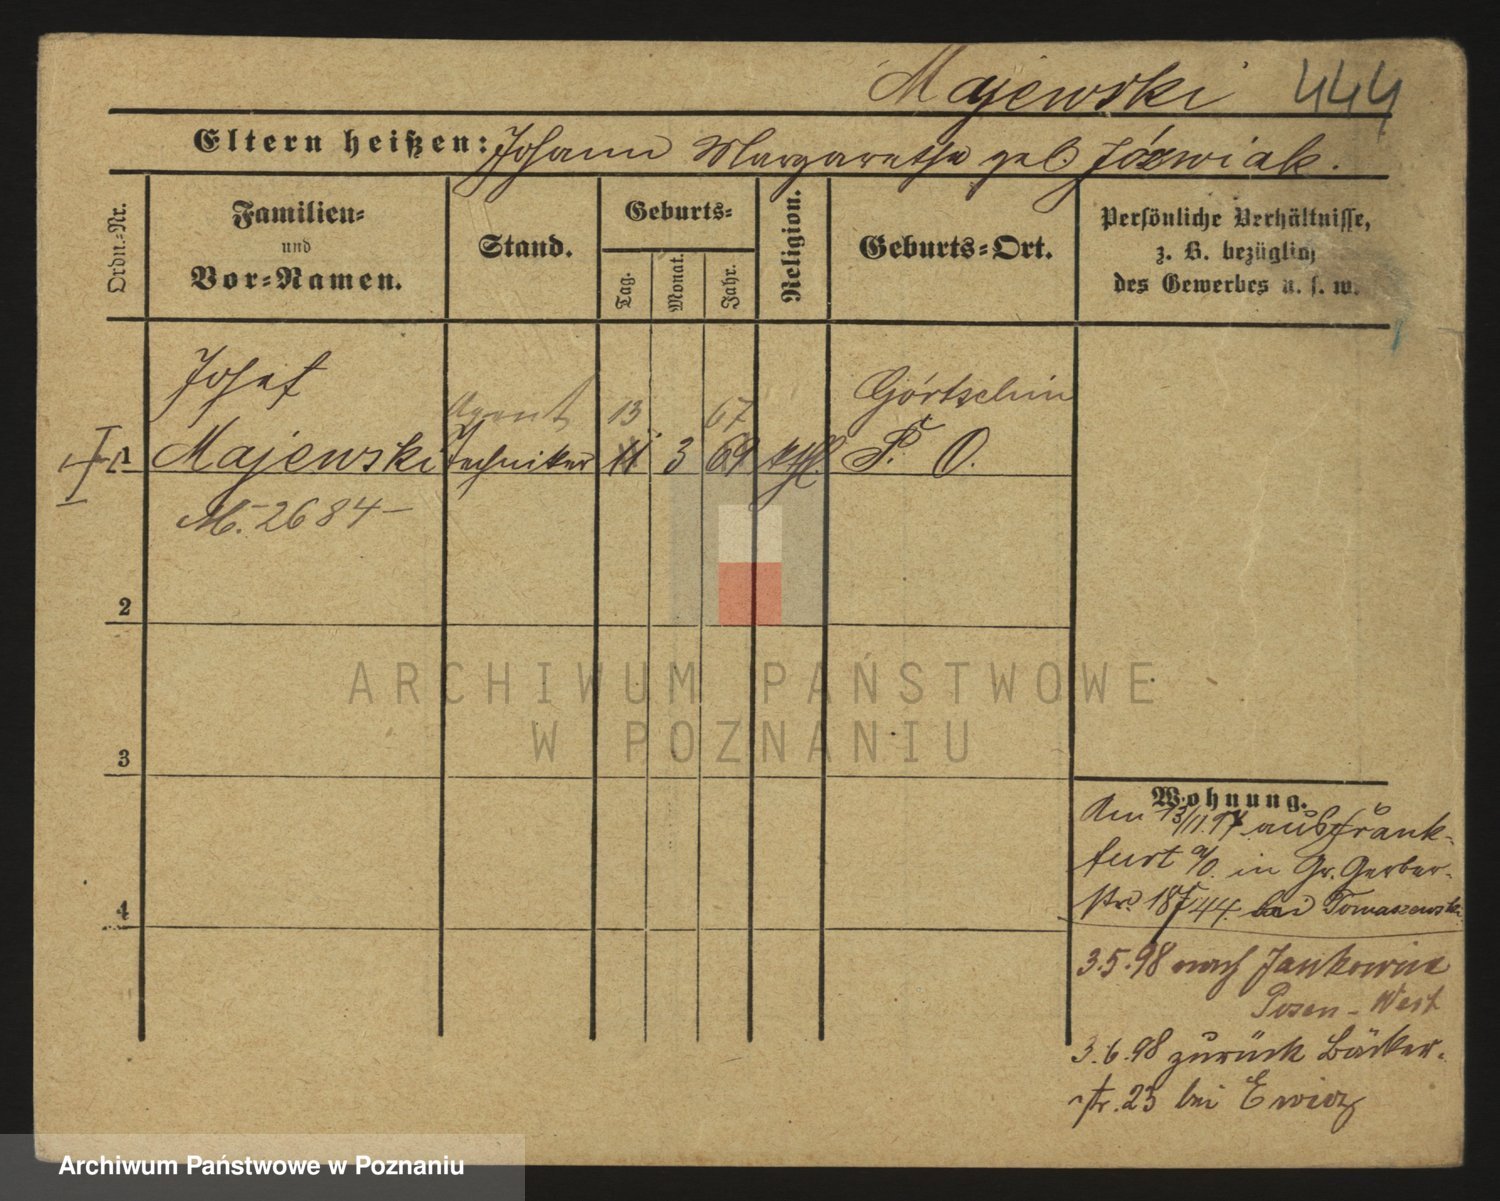 Majewski 444
Eltern heißen: Johann Margaretha geb. Jóźwiak.
Ordn.-Nr.
Familien-
und
Vor-Namen.
Stand.
Geburts-
Tag.
Monat.
Jahr.
Religion.
Geburts-Ort.
Persönliche Verhältnisse,
z. B. bezüglich
des Gewerbes u. s. w.
Josef
Agent 13 67 Górtschin
1 Majewski Techniker 11 3 69 kath. P. O.
M. - 2684 -
2
3
4
Wohnung.
Am 13/11.97 aus Frank-
furt a/O. in Gr. Gerber-
str. 44 bei Tomaszewski
3.5.98 nach Jankowice
Posen-West
3.6.98 zurück Bäcker-
str. 23 bei Ewicz
ARCHIWUM PAŃSTWOWE
W POZNANIU
Archiwum Państwowe w Poznaniu